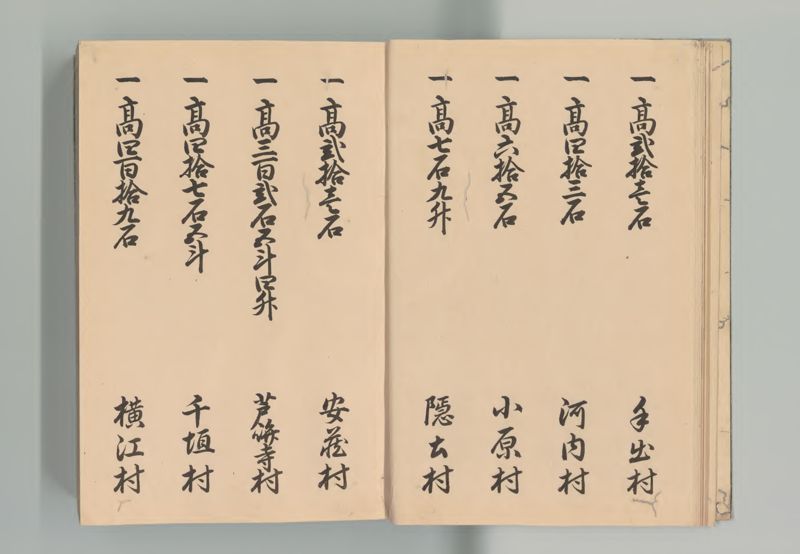 一 高弐拾壱石 手出村
一 高四拾三石 河内村
一 高六拾五石 小原村
一 高七石九升 隠土村
一 高弐拾壱石 安蔵村
一 高三百弐石五斗四升 芦峅寺村
一 高四拾七石五斗 千垣村
一 高四百拾九石 横江村